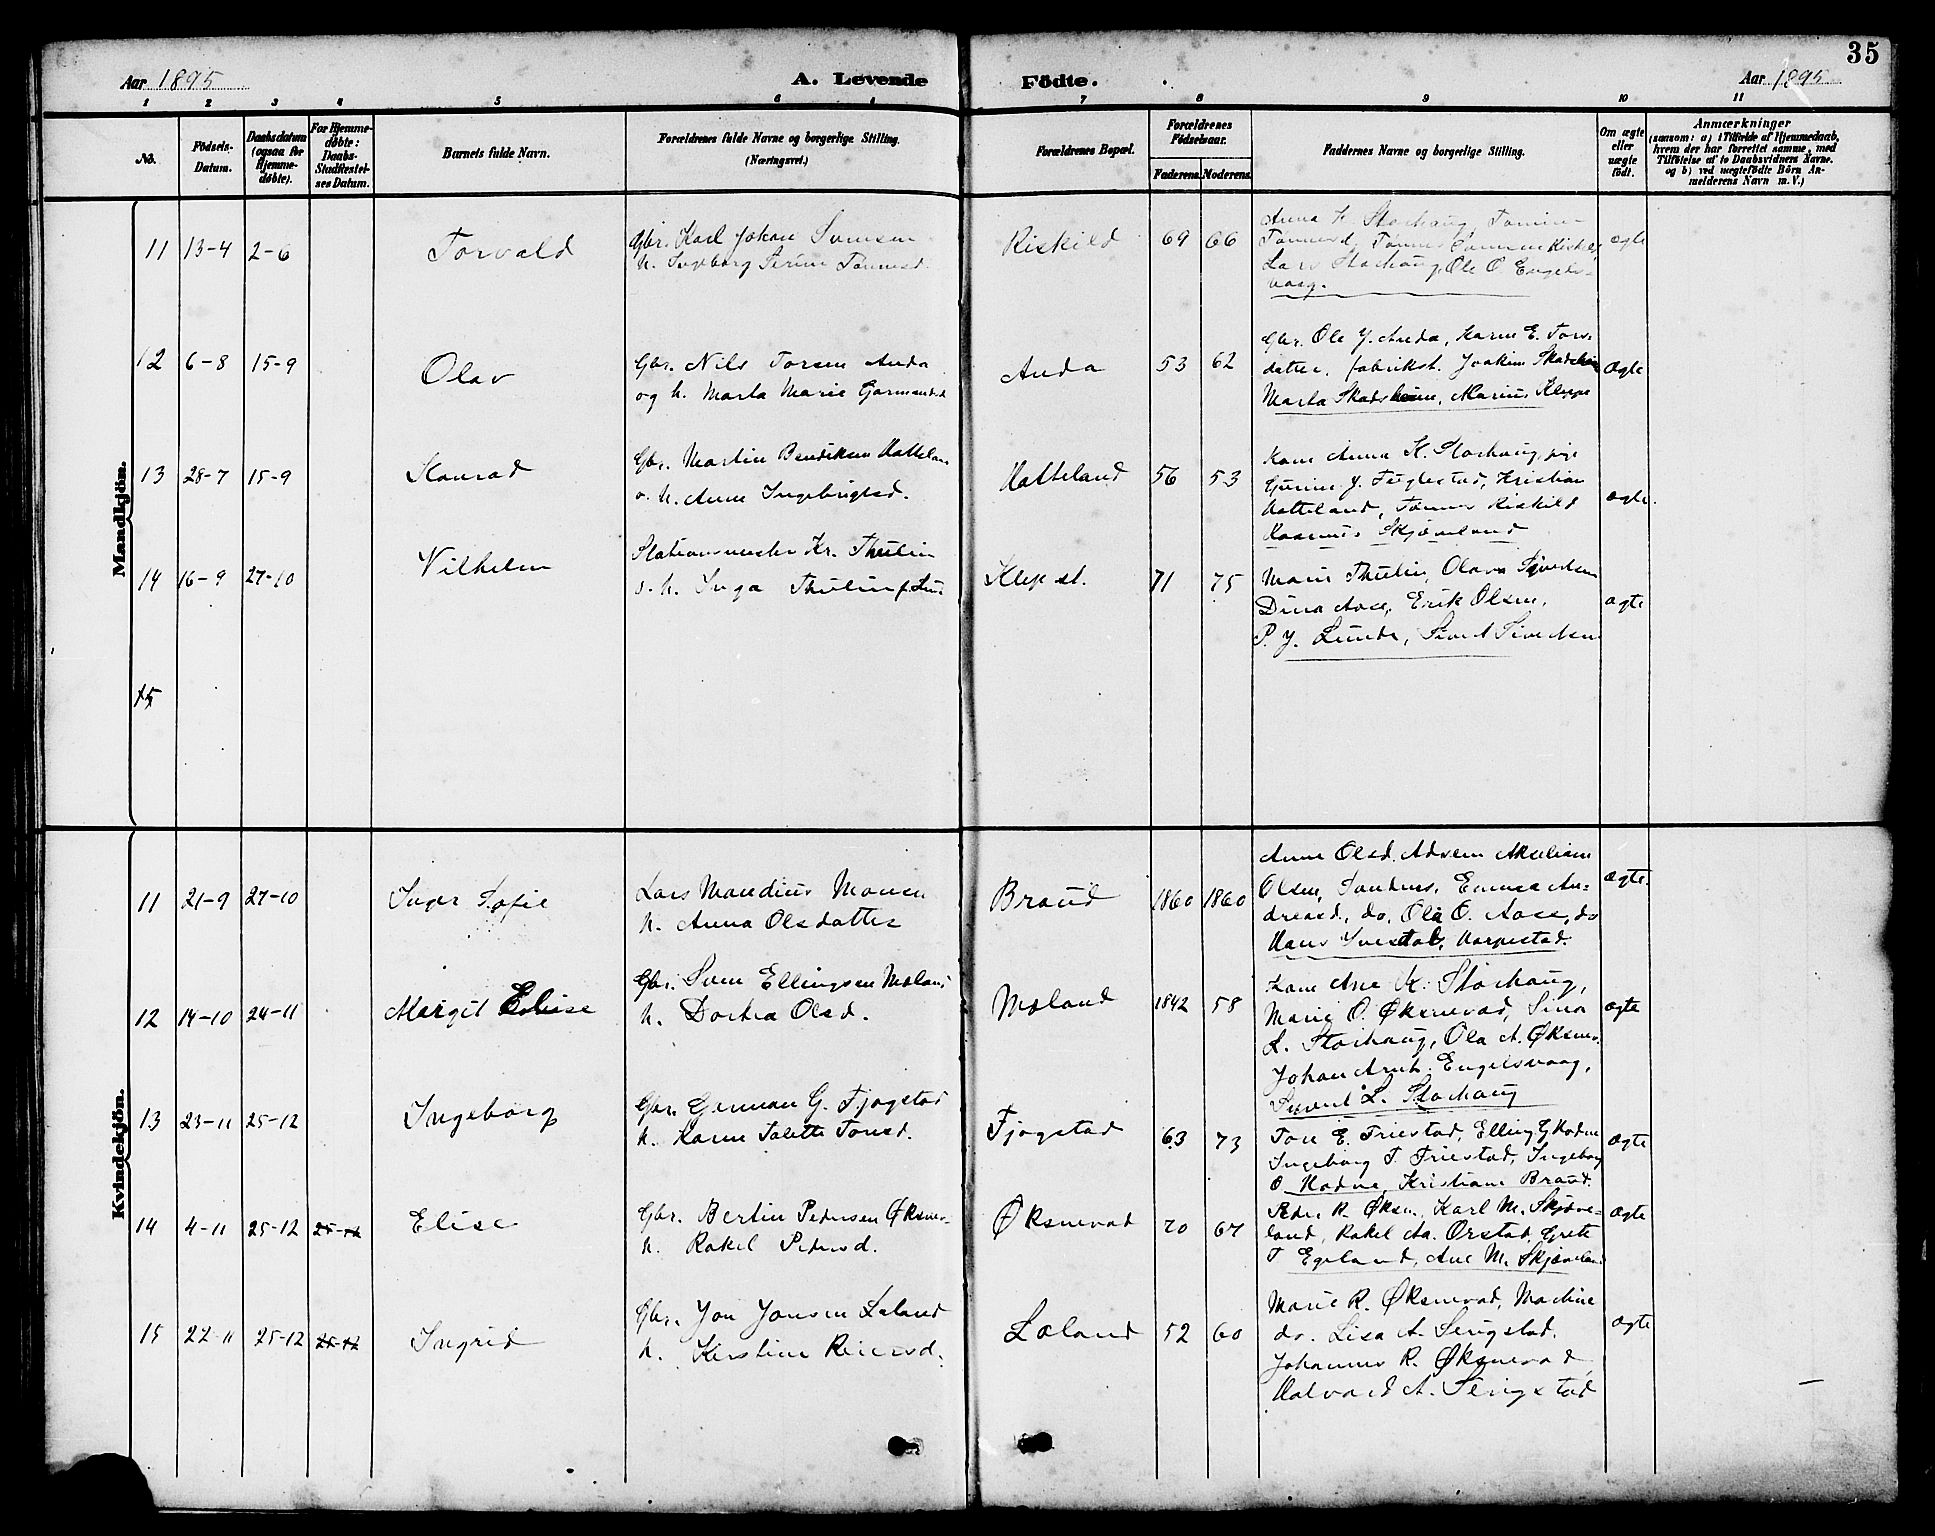 35
Aar 1895
A. Levende Födte.
Aar 1895
1 2 3 4 5 6 7 8 9 10 11
No.
Födsels-
Datum.
Daabsdatum
(ogsaa for
Hjemme-
døbte).
For Hjemme-
døbte:
Daabs-
Stadfæstel-
ses Datum.
Barnets fulde Navn.
Forældrenes fulde Navne og borgerlige Stilling.
(Næringsvei.)
Forældrenes Bopæl.
Forældrenes
Födselsaar.
Faderens. Moderens.
Faddernes Navne og borgerlige Stilling.
Om ægte
eller
uægte
födt.
Anmærkninger
(saasom: a) i Tilfælde af Hjemmedaab,
hvem der har forrettet samme, med
Tilföielse af to Daabsvidners Navne.
og b) ved uægtefödte Börn An-
melderens Navn m. V.)
Mandkjön.
11 13-4 2-6 Torvald
Gbr. Karl Johan
h. Ingeborg Serine Tønnesd.
Riskild 69 66
Anna K. Storhaug,
Lars Storhaug, Ole O. Engels-
vaag.
ægte
12 6-8 15-9 Olav
Gbr. Nils Torsen Anda
og h. Marta Marie Garmandsd
Anda 53 62
Gbr. Ole J. Anda, Karen E. Tors-
datter, fabrikst. Joakim
Marta Skadsheim, Marius Kleppe
ægte
13 28-7 15-9 Konrad
Gbr. Martin Bendiksen Hatteland
o. h. Anne Ingebrigtsd.
Hatteland 56 53
Kone Anna K. Storhaug, pige
Gurine J. Fuglestad, Kristian
Hatteland, Tønnes Riskild
Rasmus Skjæveland
ægte.
14 16-9 27-10 Vilhelm
Stationsmester Kr. Thulin
o. h. Inga Thulin f. Lund
Klep st. 71 75
Marie Thulin, Olava Sivertsen
Dina Aase, Erik Olsen,
P. J. Lunde, Sivert Sivertsen
ægte
15
Kvindekjön.
11 21-9 27-10 Inger Sofie
Lars Mandius Monsen
h. Anna Olsdatter
Braud 1860 1860
Anne Olsd. Adsem Akseliane
Olsen, Sandnes, Emma An-
dreasd., do, Ole O. Aase, do
Hans Ivesdal, Harpestad.
ægte.
12 14-10 24-11 Margit Elise
Gbr. Sven Ellingsen Mæland
h. Dortea Olsd.
Mæland 1842 58
Kone Ane K. Storhaug,
Marie O. Øksnevad, Sina
L. Storhaug, Ola A. Øksnev.
Johan Arnt. Engelsvaag,
Sivert L. Storhaug
ægte
13 23-11 25-12 Ingeborg
Gbr. Garman G. Fjogstad
h. Karen Talette Tonsd.
Fjogstad 63 73
Tore E. Friestad, Elling G Hodne
Ingeborg T. Friestad, Ingeborg
O. Hodne, Kristiane Braud.
ægte
14 4-11 25-12 25-12 Elise
Gbr. Bertin Pedersen Øksnev-
h. Rakel Pedersd.
Øksnevad 70 67
Peder R. Øksn., Karl M. Skjæve-
land, Rakel Aa. Orstad, Grete
T. Egeland, Ane M. Skjæveland
ægte
15 22-11 25-12 25-12 Ingrid
Gbr. Jon Jonsen Laland
h. Kirstine Reiersd.
Laland 52 60
Marie R. Øksnevad, Machine
do. Lisa A. Serigstad.
Johannes R. Øksnevad
Halvard A. Serigstad
ægte